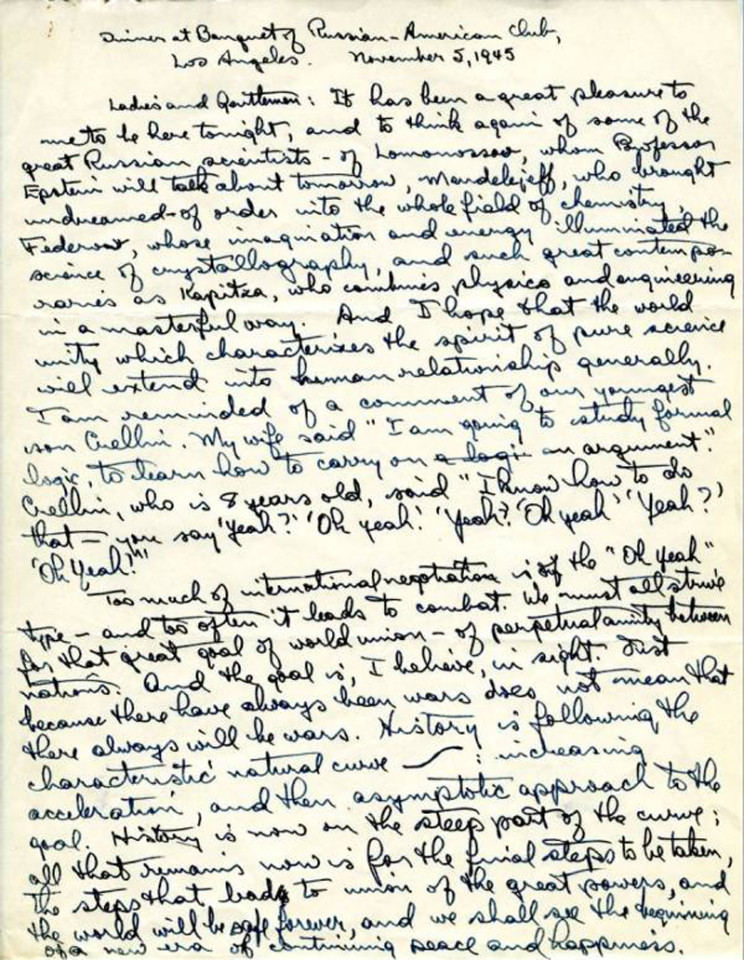 Dinner at Banquet of Russian-American Club,
Los Angeles. November 5, 1945
Ladies and Gentlemen: It has been a great pleasure to
me to be here tonight, and to think again of some of the
great Russian scientists - of Lomonossov, whom Professor
Epstein will talk about tomorrow, Mendelejeff, who brought
undreamed-of order into the whole field of chemistry,
Federov, whose imagination and energy illuminated the
science of crystallography, and such great contempo-
raries as Kapitza, who combines physics and engineering
in a masterful way. And I hope that the world
unity which characterizes the spirit of pure science
will extend into human relationship generally.
I am reminded of a comment of our youngest
son Crellin. My wife said "I am going to study formal
logic, to learn how to carry on a logi an argument."
Crellin, who is 8 years old, said "I know how to do
that - you say 'Yeah?' 'Oh yeah!' 'Yeah?' 'Oh yeah' 'Yeah?'
'Oh Yeah!'"
Too much of international negotiation is of the "Oh Yeah"
type - and too often it leads to combat. We must all strive
for that great goal of world union - of perpetual amity between
nations. And the goal is, I believe, in sight. Just
because there have always been wars does not mean that
there always will be wars. History is following the
characteristic natural curve : increasing
acceleration, and then asymptotic approach to the
goal. History is now on the steep part of the curve;
all that remains now is for the final steps to be taken,
the steps that lead to union of the great powers, and
the world will be safe forever, and we shall see the beginning
of a new era of continuing peace and happiness.